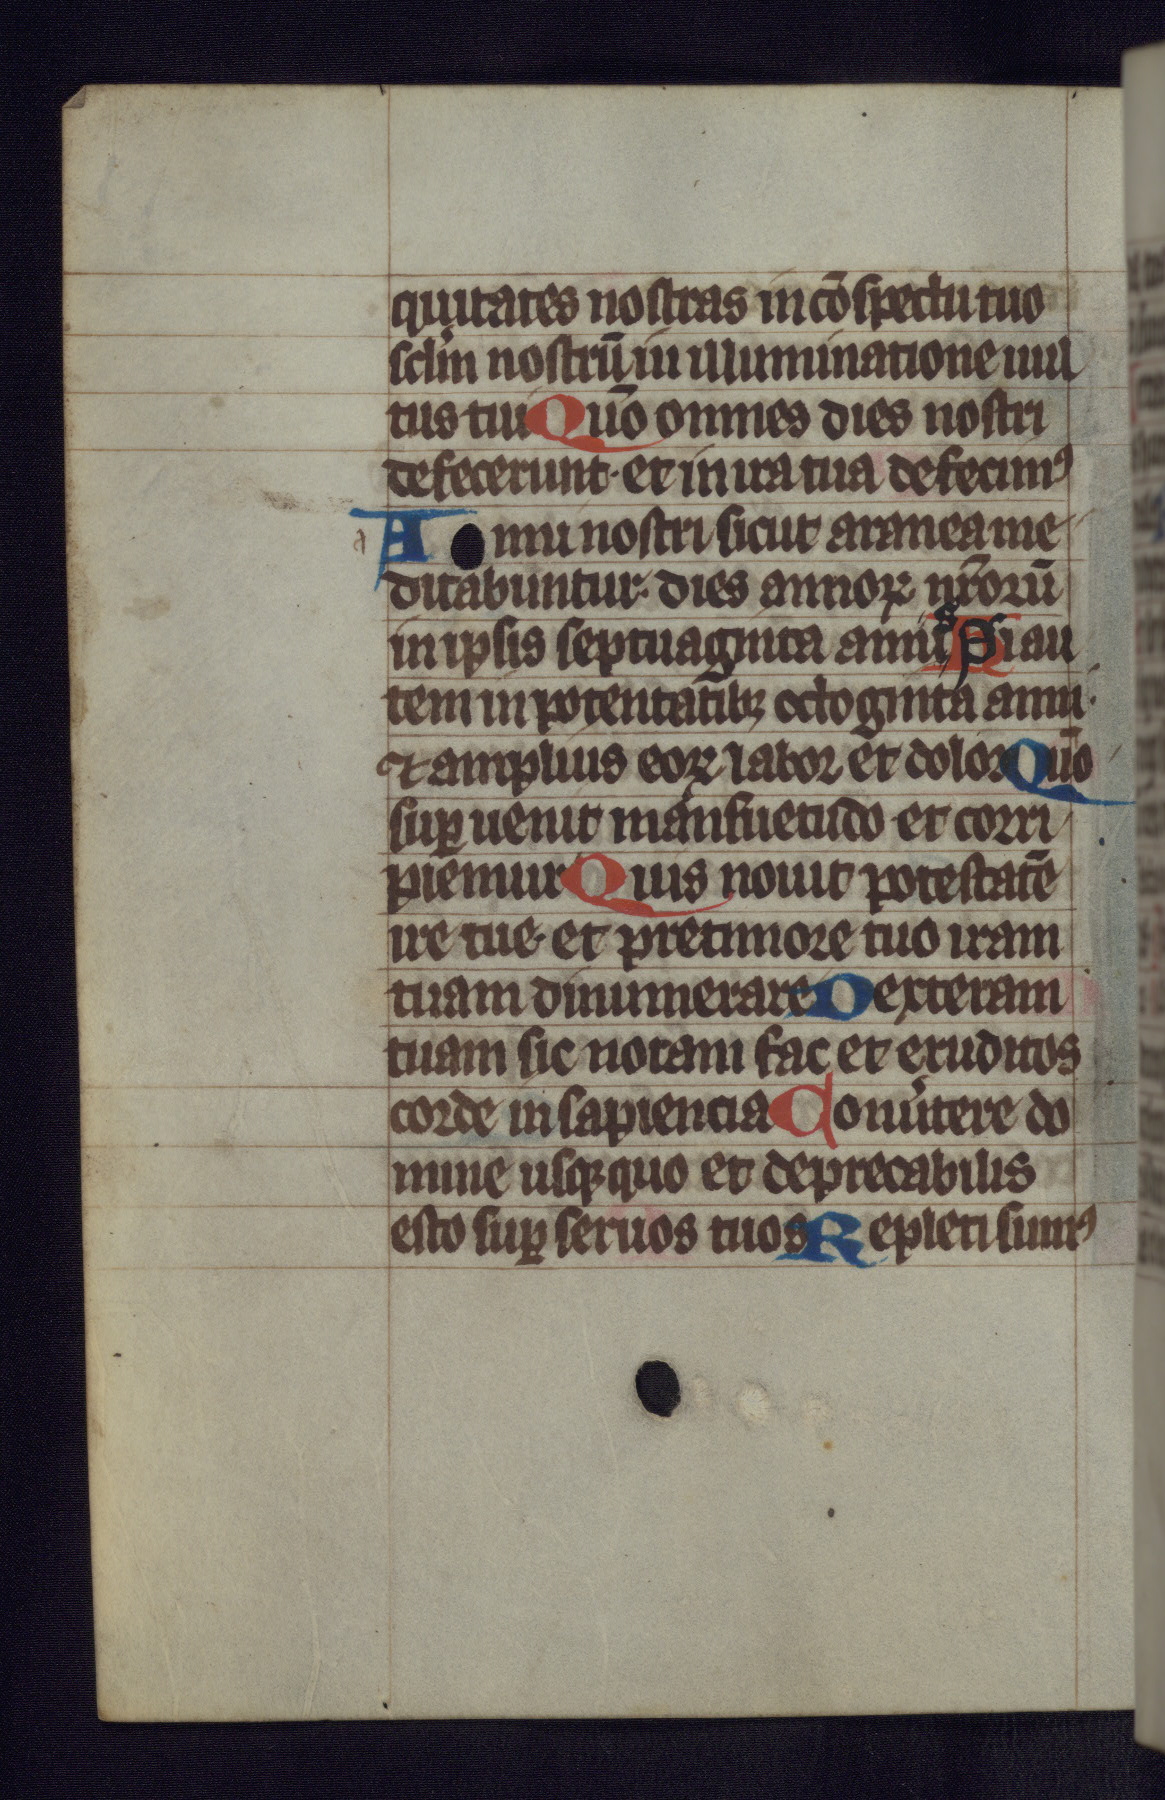 quitates nostras in cōspectu tuo
sclm̄ nostrū in illuminatione uul
tus tui Quō omnes dies nostri
defecerunt· et in ira tua defecimꝰ
a A nni nostri sicut aranea me
ditabuntur· dies annoꝝ nr̄orū
in ipsis septuaginta annis Si au
tem in potentatibꝫ octoginta anni·
Et amplius eoꝝ labor et dolor Quō
suꝑ uenit mansuetudo et corri
piemur Quis nouit potestatē
ire tue· et pre timore tuo iram
tuam dinumerare Dexteram
tuam sic notam fac et eruditos
corde in sapiencia Conu̓tere do
mine usqꝫ quo et deprecabilis
esto suꝑ seruos tuos Repleti sumꝰ